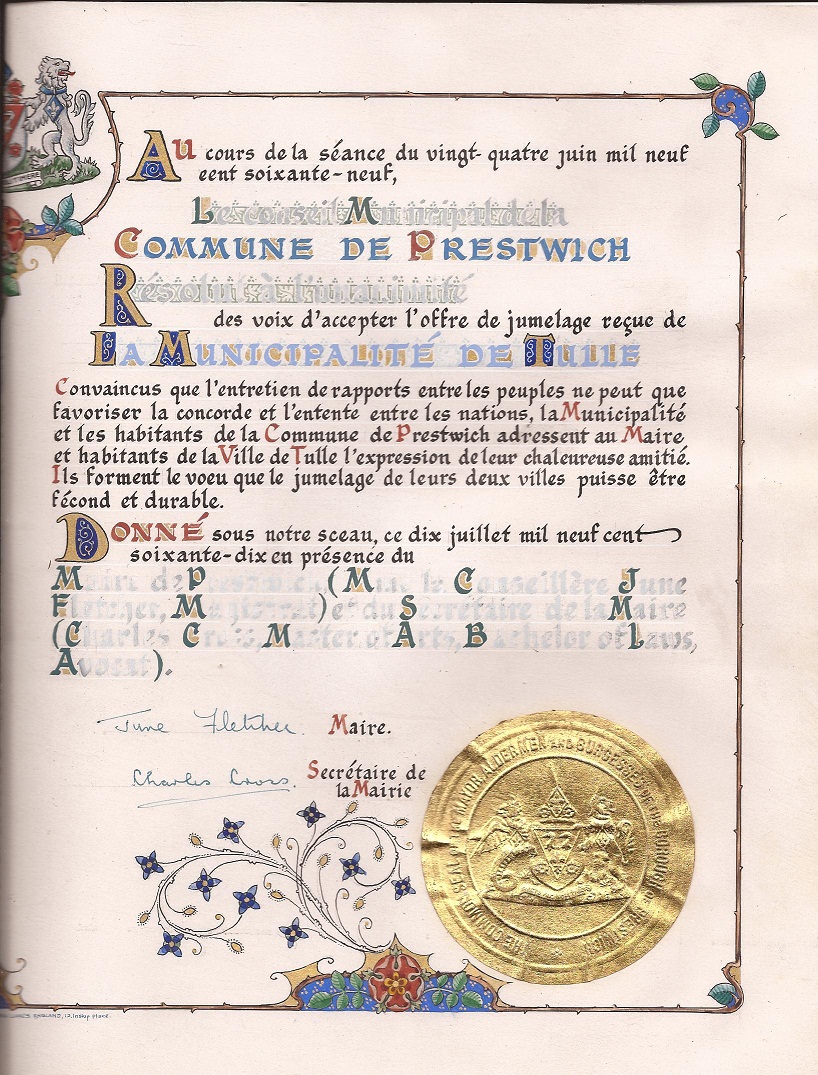 Au cours de la séance du vingt-quatre juin mil neuf
cent soixante-neuf,
Le conseil Municipal de la
COMMUNE DE PRESTWICH
Résolut à l'unanimité
des voix d'accepter l'offre de jumelage reçue de
LA MUNICIPALITÉ DE TULLE
Convaincus que l'entretien de rapports entre les peuples ne peut que
favoriser la concorde et l'entente entre les nations, la Municipalité
et les habitants de la Commune de Prestwich adressent au Maire
et habitants de la Ville de Tulle l'expression de leur chaleureuse amitié.
Ils forment le voeu que le jumelage de leurs deux villes puisse être
fécond et durable.
DONNÉ sous notre sceau, ce dix juillet mil neuf cent
soixante-dix en présence du
Maire de Prestwich, (Mme le Conseillère June
Fletcher, Magistrat) et du Secrétaire de la Mairie
(Charles Cross, Master of Arts, Bachelor of Laws,
Avocat).
June Fletcher. Maire.
Charles Cross. Secrétaire de
la Mairie
THE COMMON SEAL OF THE MAYOR ALDERMEN AND BURGESSES OF THE BOROUGH OF PRESTWICH
ENGLAND, 12, Inskip place.